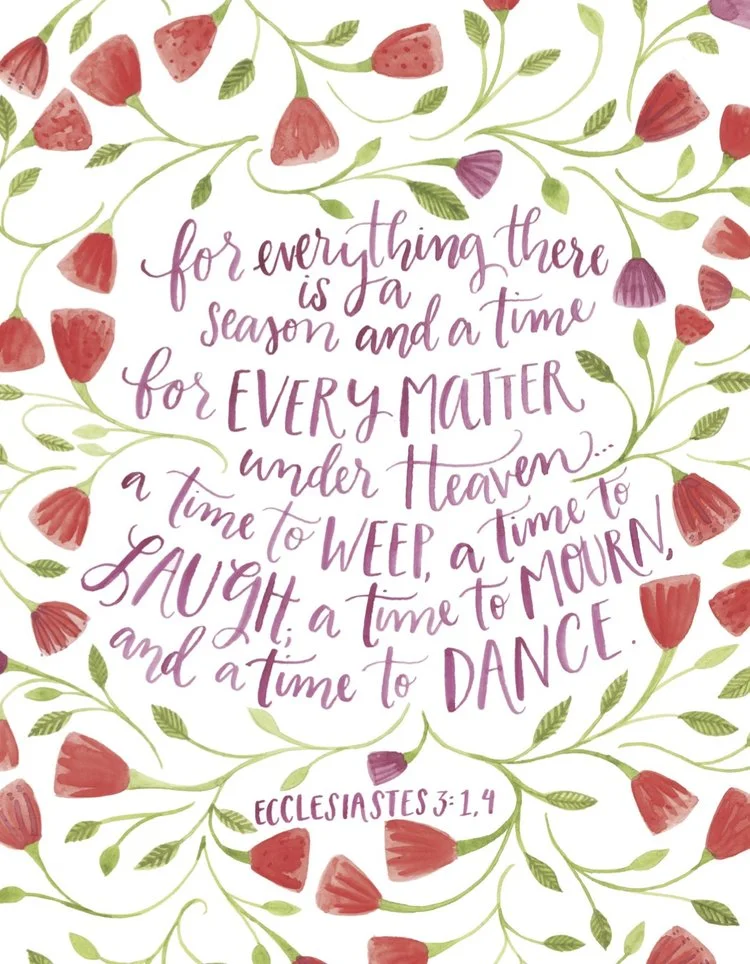 for everything there
is a
season and a time
for EVERY MATTER
under Heaven...
a time to WEEP, a time to
LAUGH; a time to MOURN,
and a time to DANCE.
ECCLESIASTES 3:1,4